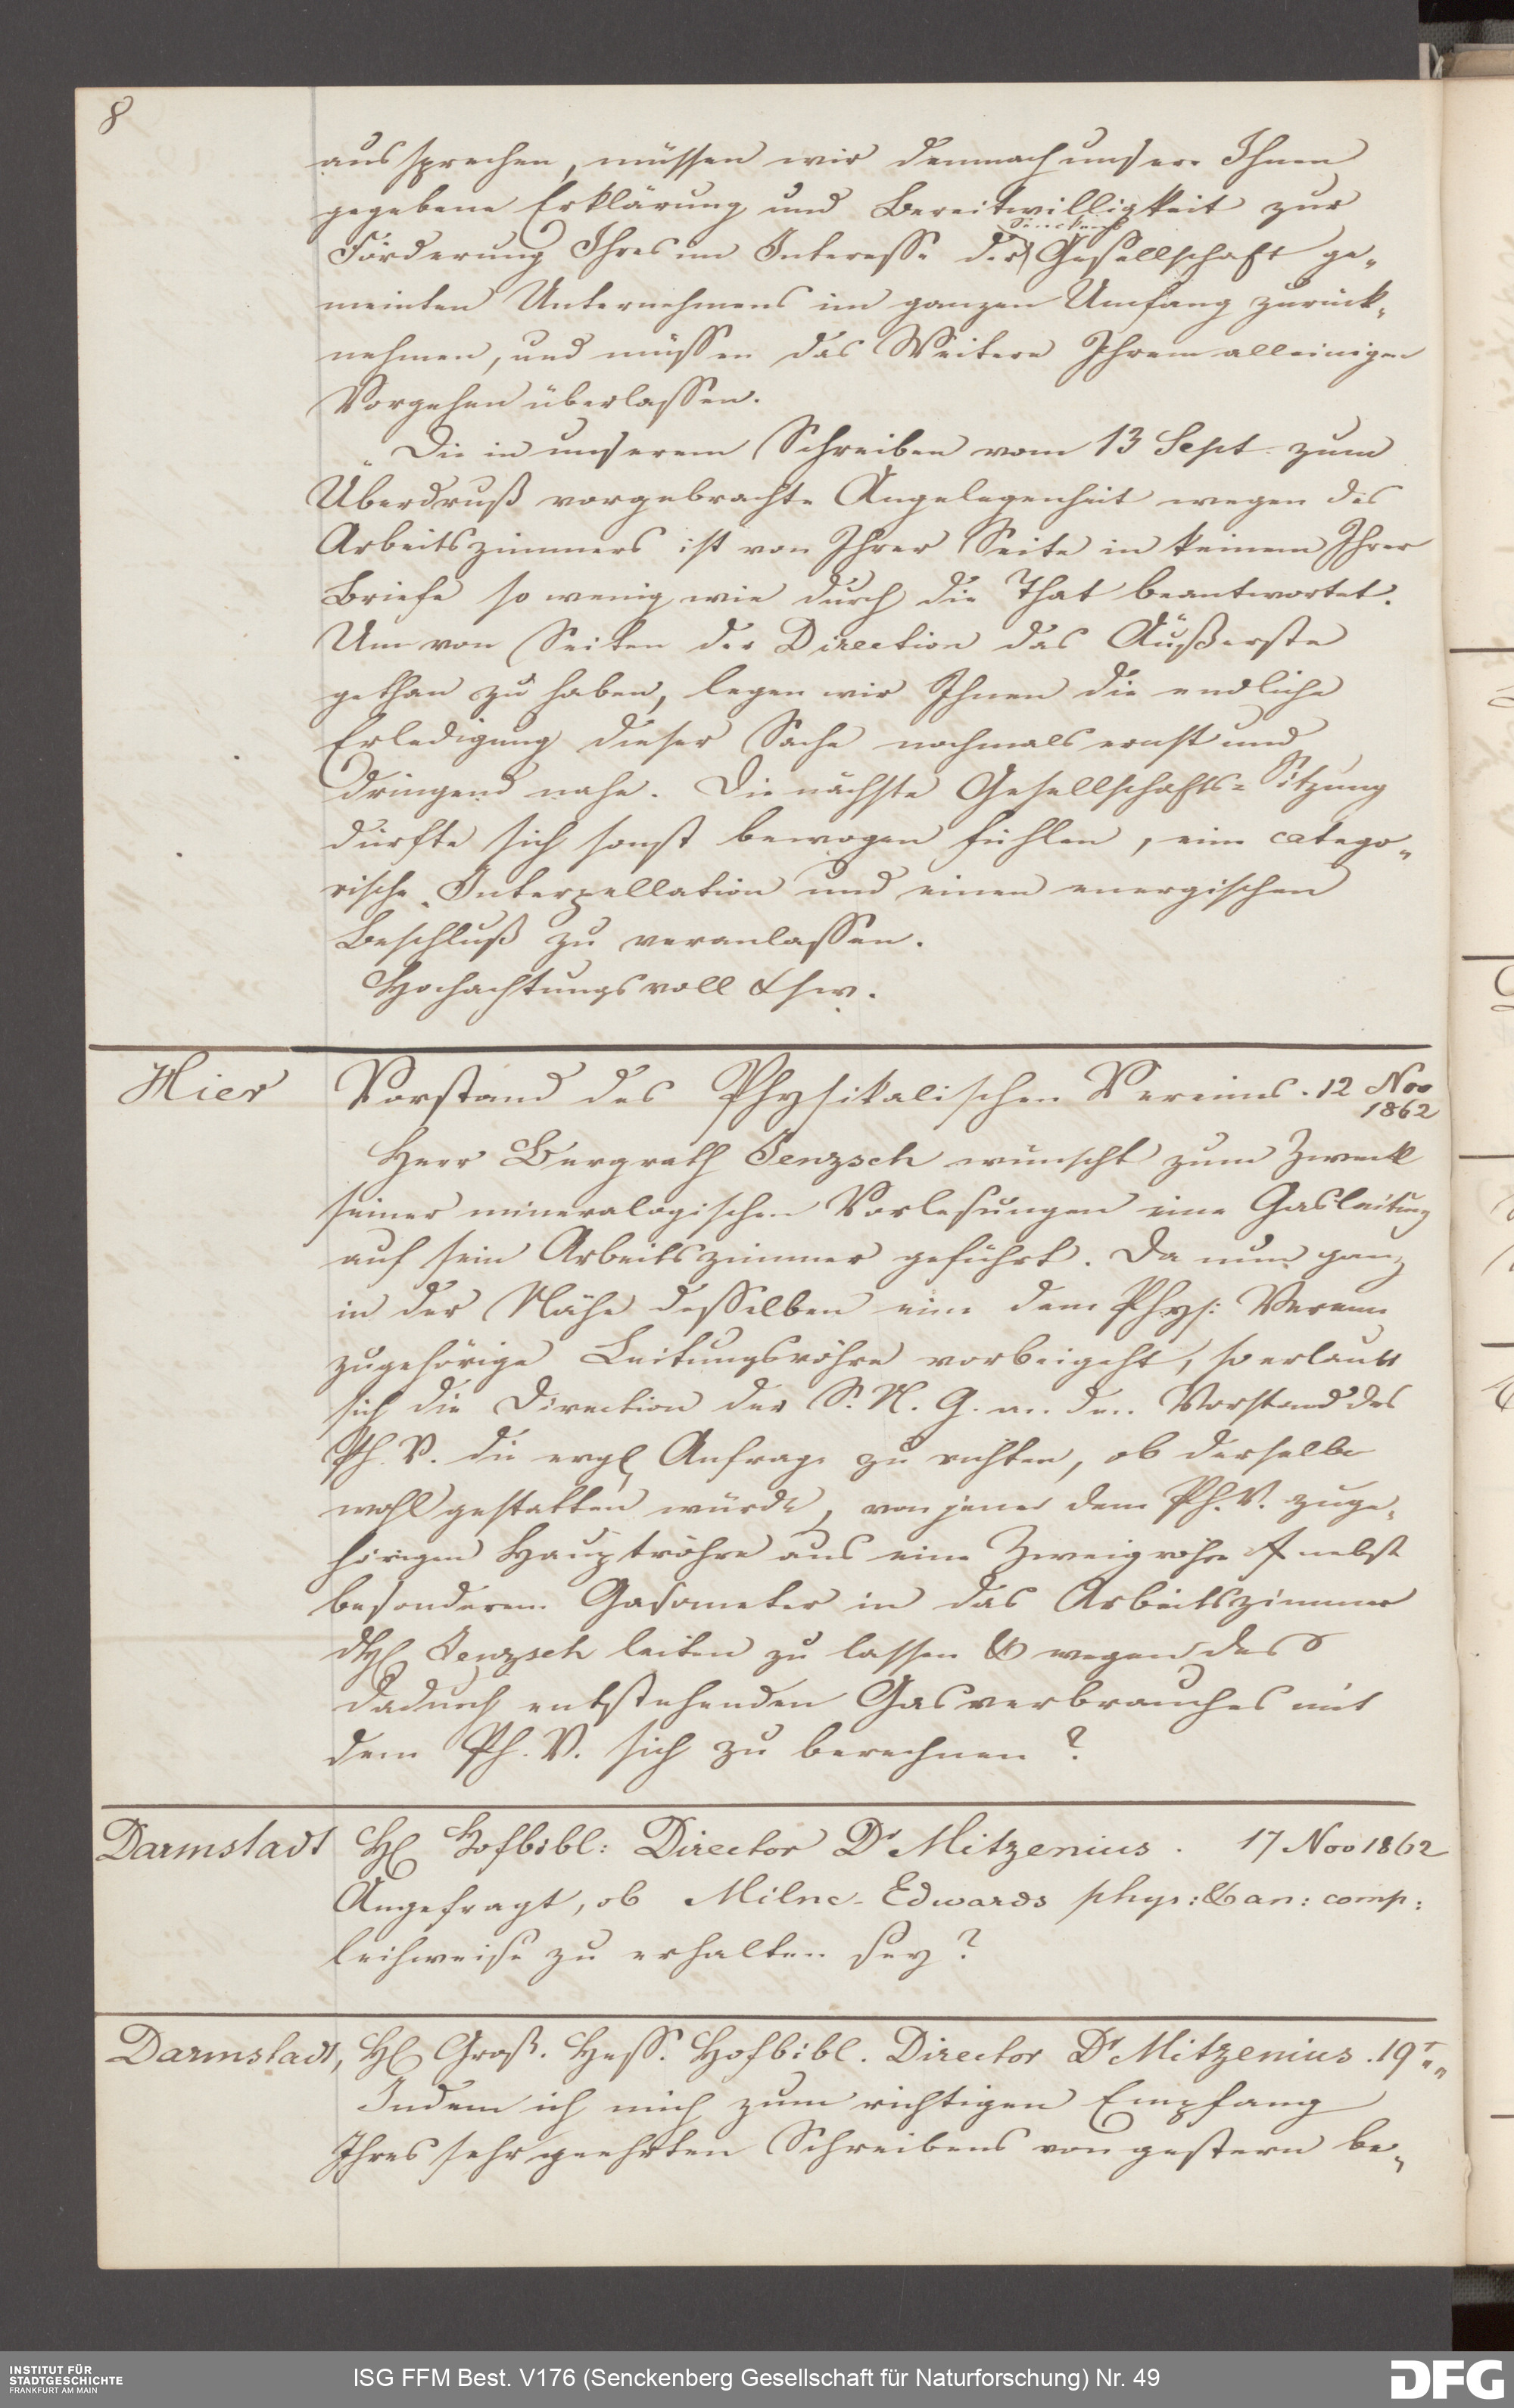 8
aussprechen, müssen wir demnach unsere Ihnen
gegebene Erklärung und Bereitwilligkeit zur
Förderung Ihres im Interesse der Gesellschaft ge„
meinten Unternehmens im ganzen Umfang zurück„
nehmen, und müssen das Weitere Ihrem alleinigen
Vorgehen überlassen.
Die in unserem Schreiben vom 13 Sept. zum
Überdruß vorgebrachte Angelegenheit wegen des
Arbeitszimmers ist von Ihrer Seite in keinem Ihrer
Briefe so wenig wie durch die That beantwortet.
Um von Seiten der Direction das Äußerste
gethan zu haben, legen wir Ihnen die endliche
Erledigung dieser Sache nochmals ernst und
dringend nahe. Die nächste Gesellschafts=Sitzung
dürfte sich sonst bewogen fühlen, eine catego„
rische Interpellation und einen energischen
Beschluß zu veranlassen.
Hochachtungsvoll & s w.
Hier Vorstand des Physikalischen Vereins. 12 Nov
1862
Herr Bergrath Jenzsch wünscht zum Zweck
seiner mineralogischen Vorlesungen eine Gasleitung
auf sein Arbeitszimmer geführt. Da nun ganz
in der Nähe desselben eine dem Phys: Verein
zugehörige Leitungsröhre vorbeigeht, so erlaubt
sich die Direction der S. N. G. an den Vorstand des
Ph. V. die ergl Anfrage zu richten, ob derselbe
wohl gestatten würde, von jener dem Ph. V. zuge„
hörigen Hauptröhre aus eine Zweigröhre nebst
besonderem Gasometer in das Arbeitszimmer
dH Jenzsch leiten zu lassen & wegen des
dadurch entstehenden Gasverbrauches mit
dem Ph. V. sich zu berechnen?
Darmstadt H Hofbibl: Director Dr Mitzenius. 17 Nov 1862
Angefragt, ob Milne-Edwards phys: & an: comp:
leihweise zu erhalten sey?
Darmstadt, H Groß. Hess. Hofbibl. Director Dr Mitzenius. 19 „ „
Indem ich mich zum richtigen Empfang
Ihres sehr geehrten Schreibens von gestern be„
INSTITUT FÜR
STADTGESCHICHTE
FRANKFURT AM MAIN
ISG FFM Best. V176 (Senckenberg Gesellschaft für Naturforschung) Nr. 49
DFG